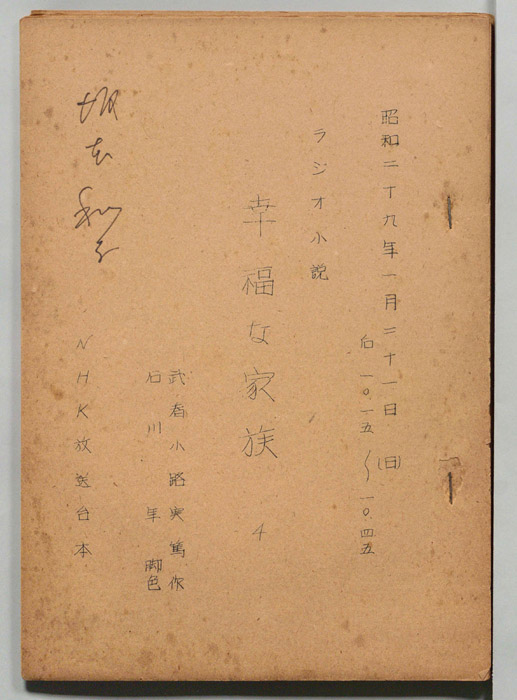 昭和二十九年一月二十一日(日)
后一〇.一五～一〇.四五
ラジオ小説
幸福な家族 4
武者小路実篤作
石川 年 脚色
NHK放送台本
坂本和子